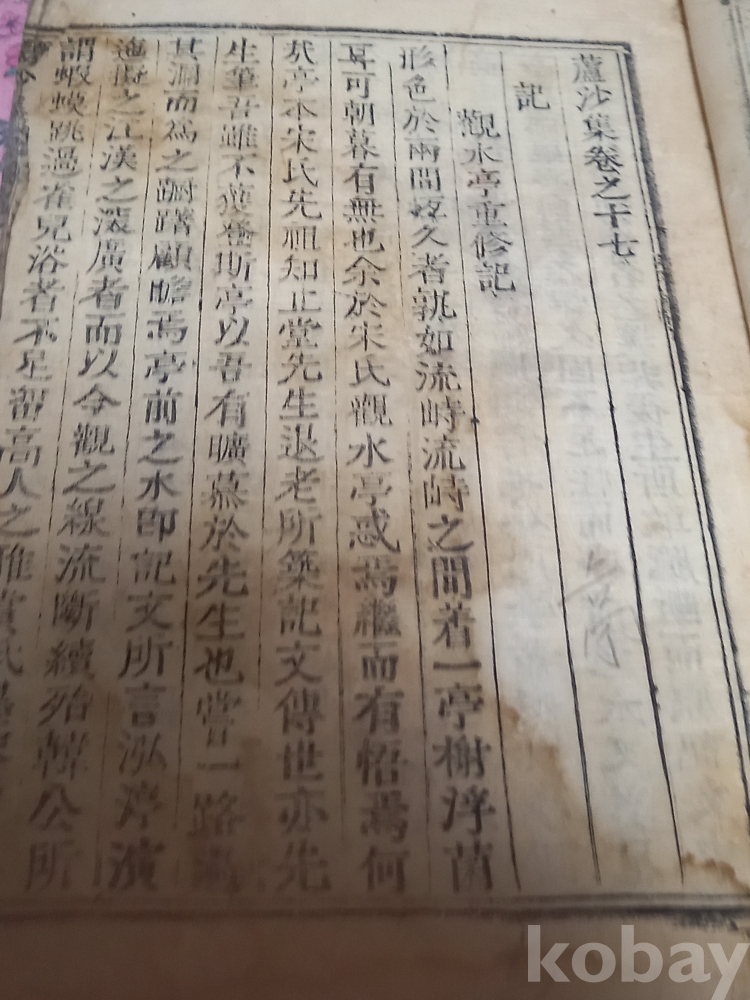 蘆沙集卷之十七
記
觀水亭重修記
形色於兩間悠久者孰如流峙流峙之間著一亭榭浮菌
耳可朝暮有無也余於宋氏觀水亭惑焉繼而有悟焉何
哉亭本宋氏先祖知止堂先生退老所築記文傳世亦先
生筆吾雖不獲登斯亭以吾有曠慕於先生也嘗一路
其洞而爲之躕躇顧瞻焉亭前之水卽記文所言泓渟演
迤擬之江漢之滾廣者而以今觀之線流斷續殆韓公所
謂蝦蟆跳過雀兒浴者不足留高人之雅賞
kobay